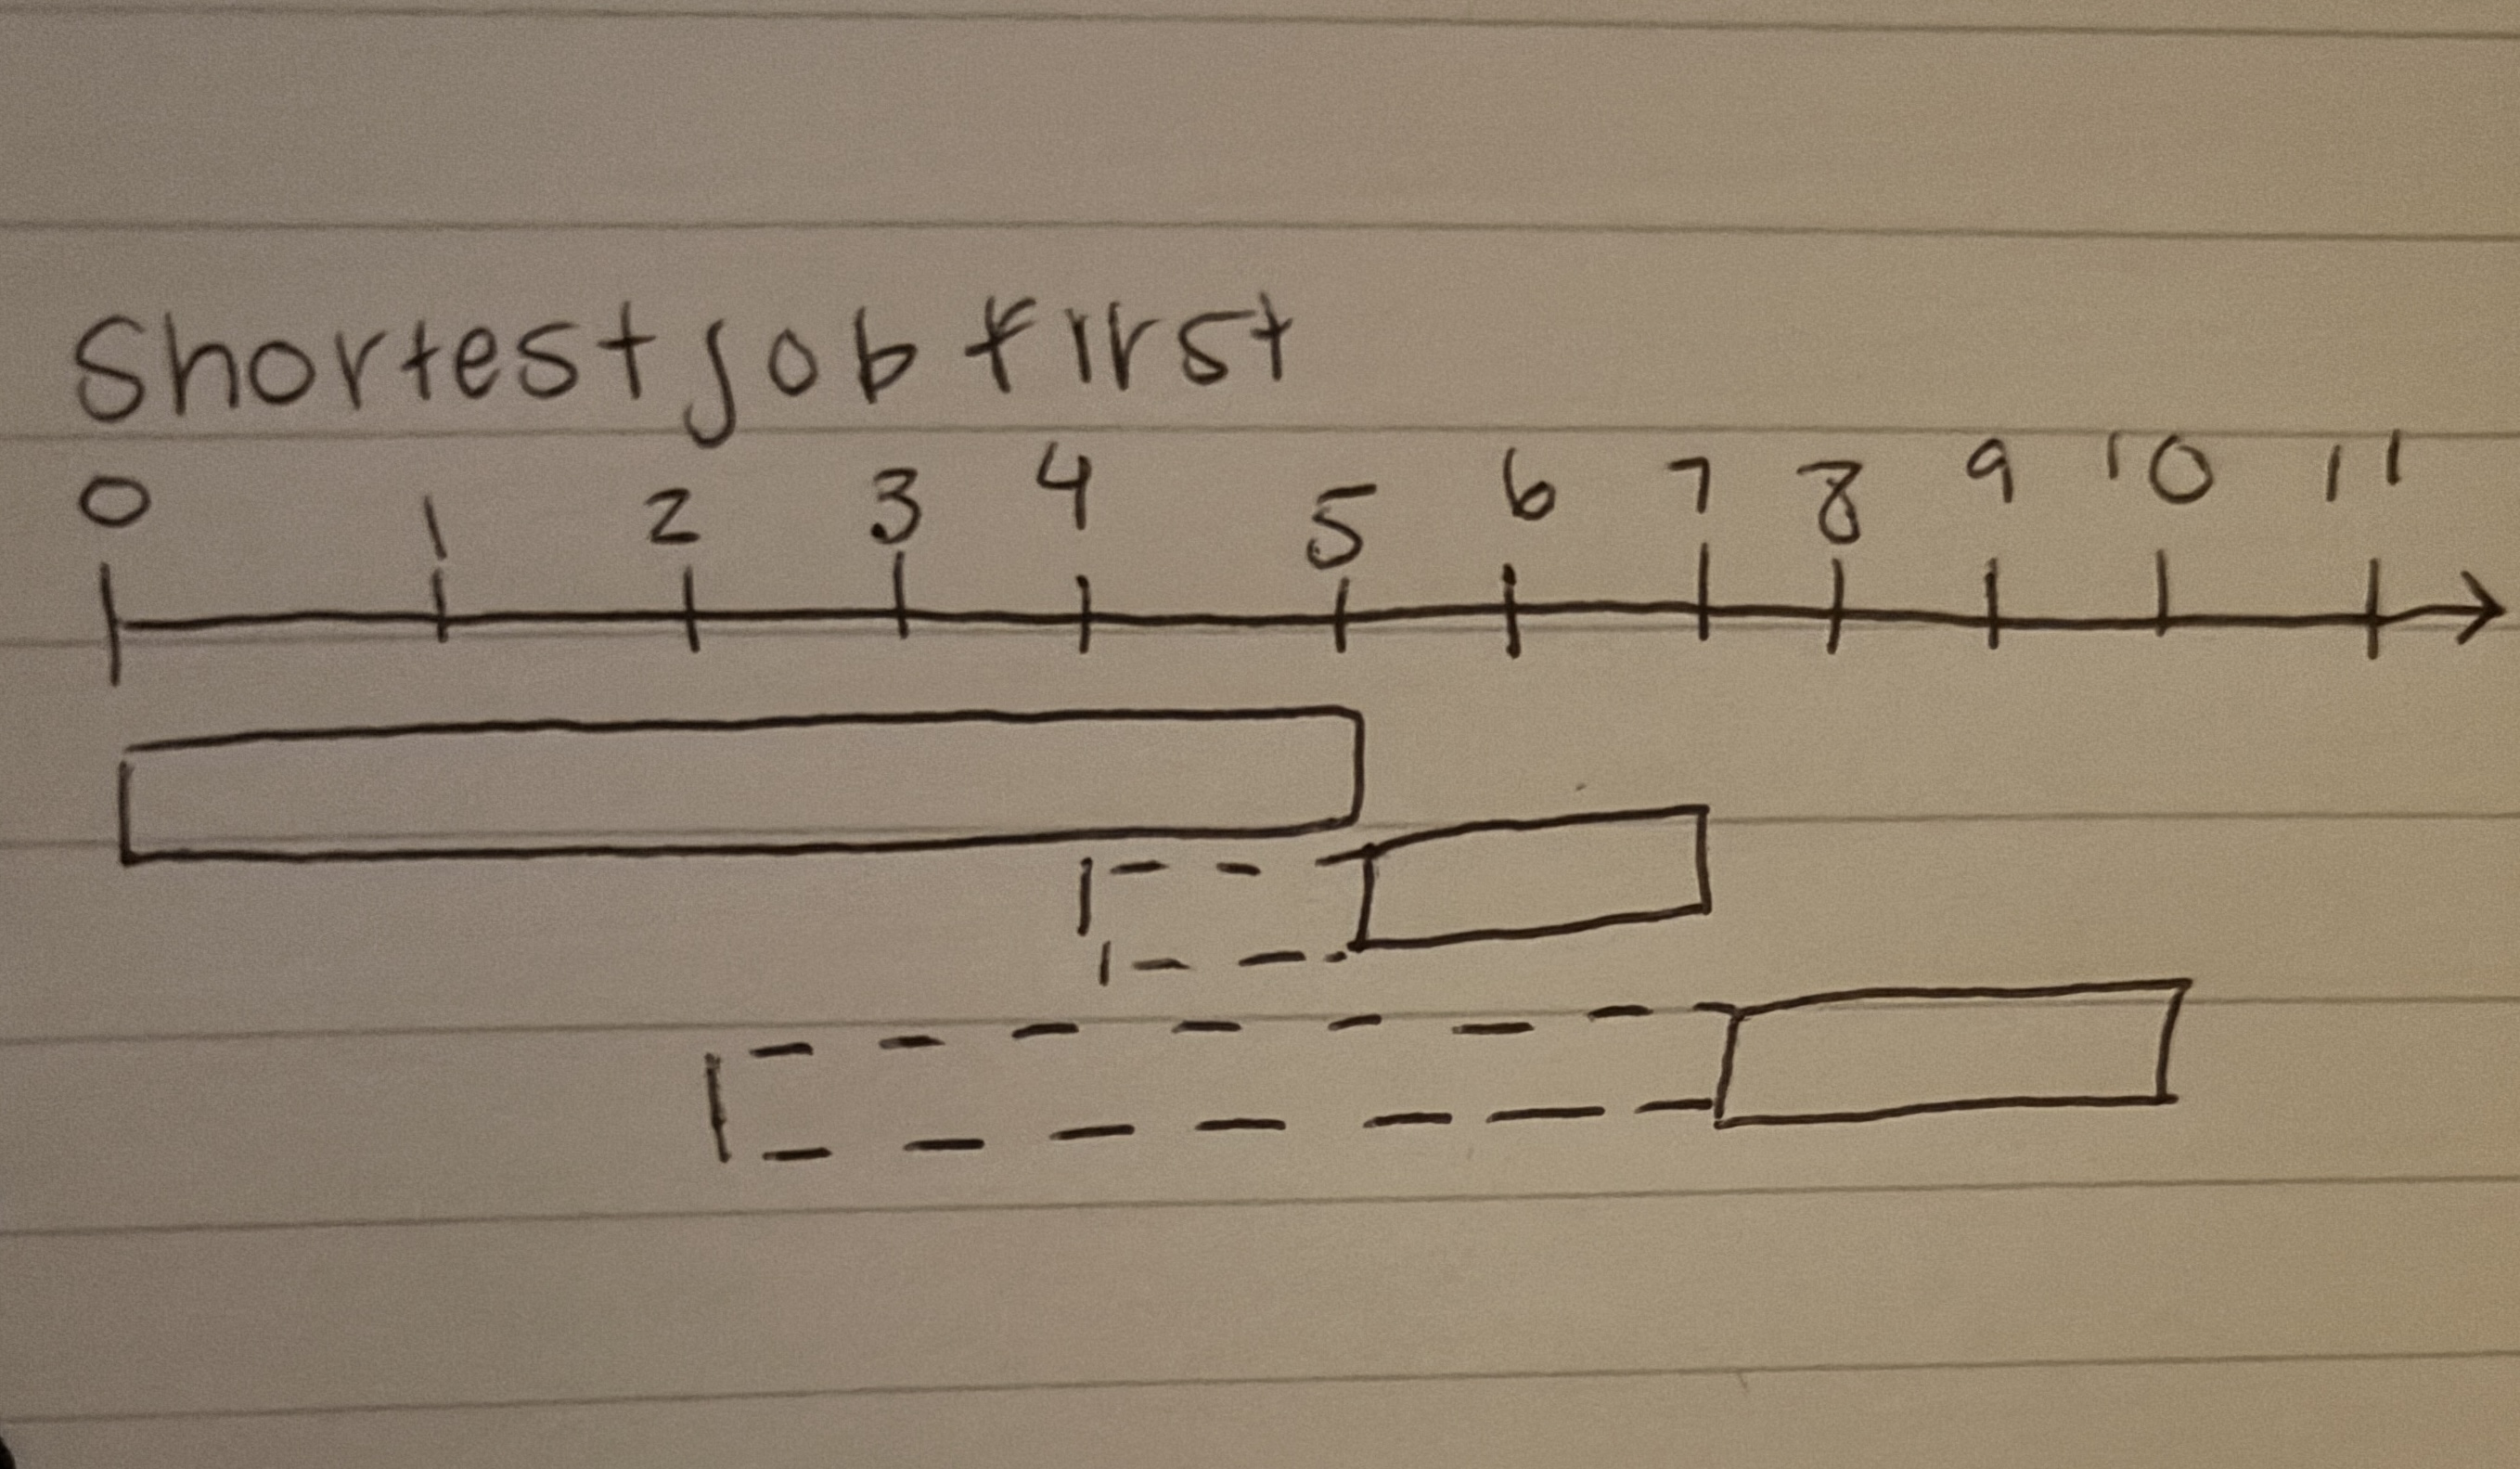 Shortest job first
0 1 2 3 4 5 6 7 8 9 10 11